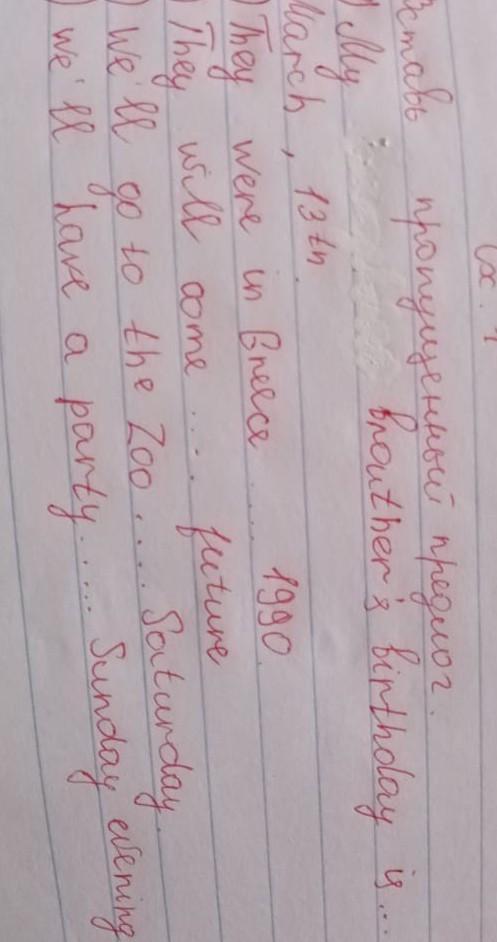 Ex. 1
Вставь пропущенный предлог.
) My brouther's birthday is...
March, 13 th
) They were in Greece ..... 1990.
) They will come .... future
) We'll go to the Zoo .... Saturday.
) we'll have a party..... Sunday evening